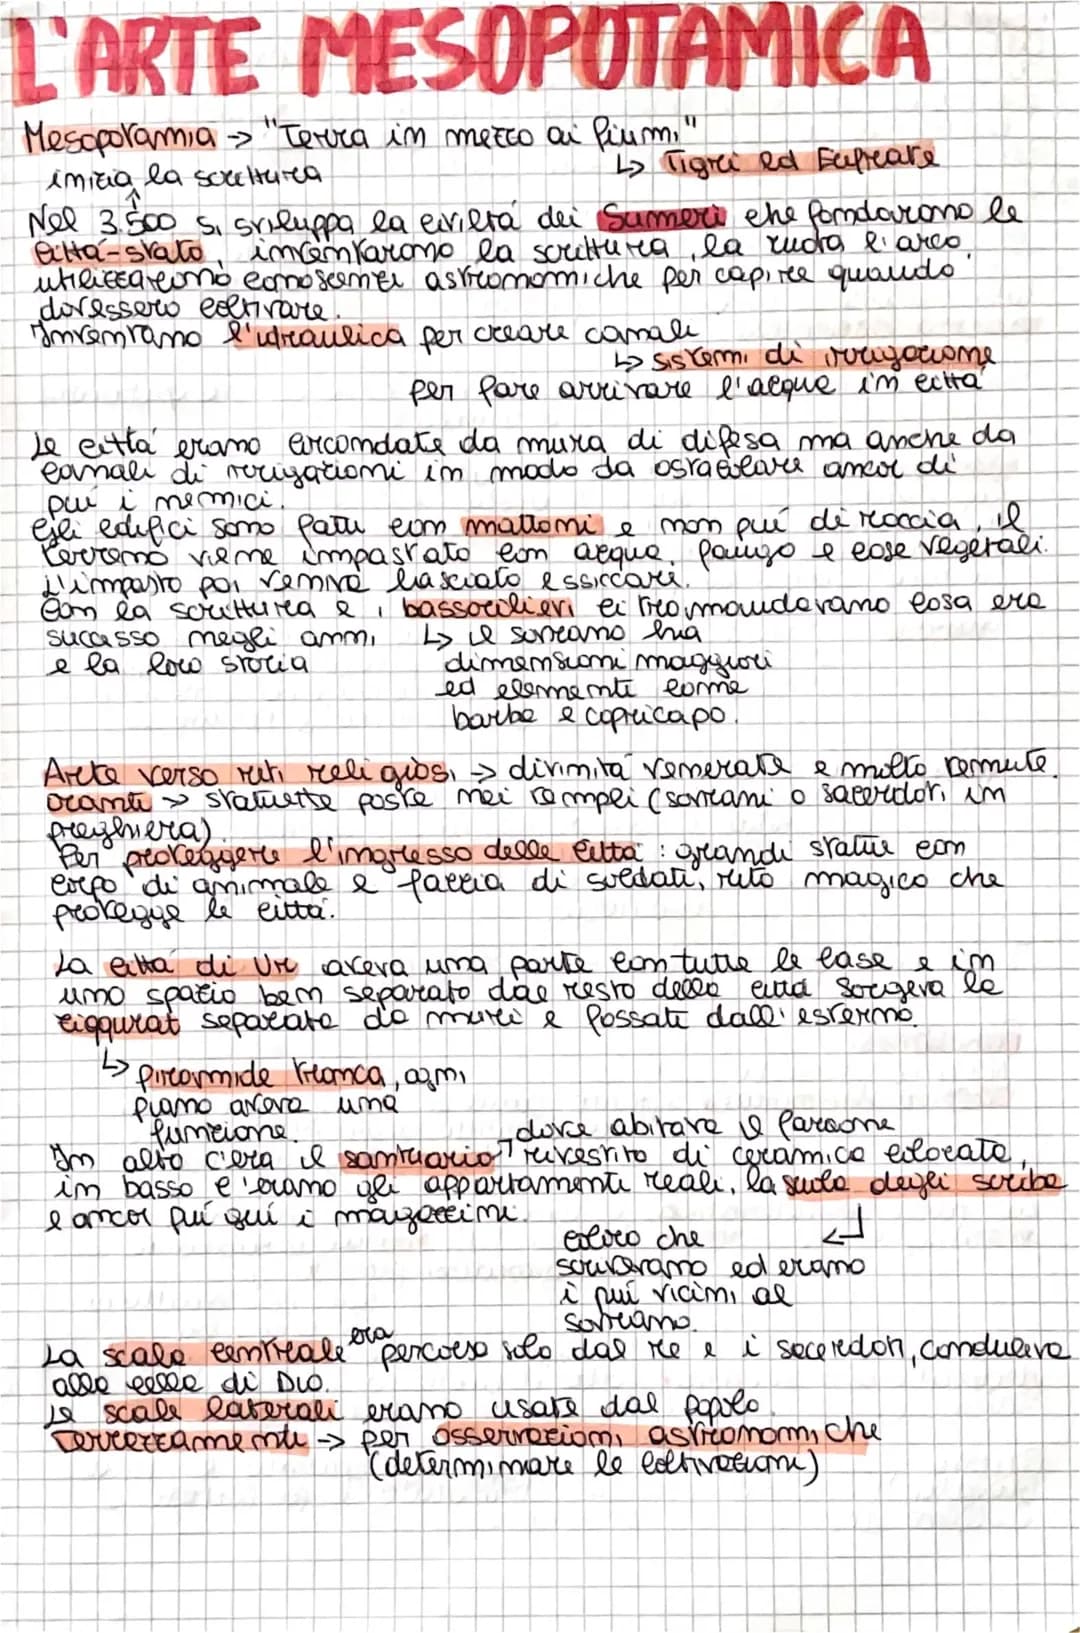 L'ARTE MESOPOTAMICA
Mesopotamia → "Terra in mezzo ai fiumi"
↳ Tigri ed Eufrate
inizia la scrittura
Nel 3.500 si sviluppa la civiltà dei Sumeri che fondarono le
città-stato, inventarono la scrittura, la ruota l'arco,
utilizzarono conoscenze astronomiche per capire quando
dovessero coltivare.
Inventano l'idraulica per creare canali
↳ sistemi di irrigazione
per fare arrivare l'acqua in città
Le città erano circondate da mura di difesa ma anche da
canali di irrigazioni in modo da ostacolare ancor di
più i nemici.
Gli edifici sono fatti con mattoni e non più di roccia, il
terreno viene impastato con acqua, fango e cose vegetali.
L'impasto poi veniva lasciato essiccare.
Con la scrittura e i bassorilievi ci tramandavano cosa era
successo negli anni
e la loro storia
↳ il sovrano ha
dimensioni maggiori
ed elementi come
barba e copricapo.
Arte verso riti religiosi → divinità venerate e molto temute.
Oranti → statuette poste nei tempei (sovrani o sacerdoti in
preghiera).
Per proteggere l'ingresso delle città: grandi statue con
corpo di animale e faccia di soldati, rito magico che
protegge le città.
La città di Ur aveva una parte con tutte le case e in
uno spazio ben separato dal resto della città sorgeva la
ziqqurat separata da muri e fossati dall'esterno.
↳ piramide tronca, ogni
piano aveva una
funzione.
dove abitava il faraone
In alto c'era il santuario rivestito di ceramica colorata,
in basso c'erano gli appartamenti reali, la scuola degli scriba
e ancor più giù i magazzini.
coloro che
scrivevano ed erano
i più vicini al
sovrano.
La scala centrale era percorsa solo dal re e i sacerdoti, conduceva
alla cella di Dio.
Le scale laterali erano usate dal popolo.
Terrazzamenti → per osservazioni astronomiche
(determinare le coltivazioni)